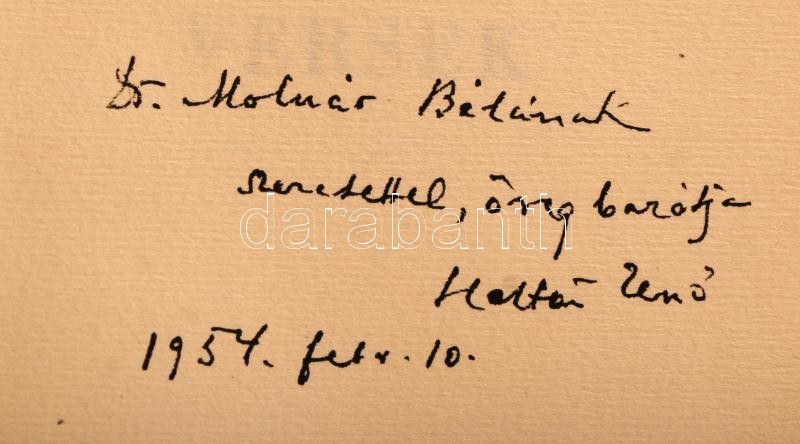 VERSEK
Dr. Molnár Bélának
szeretettel, öreg barátja
Heltai Jenő
1954. febr. 10.
darabanth